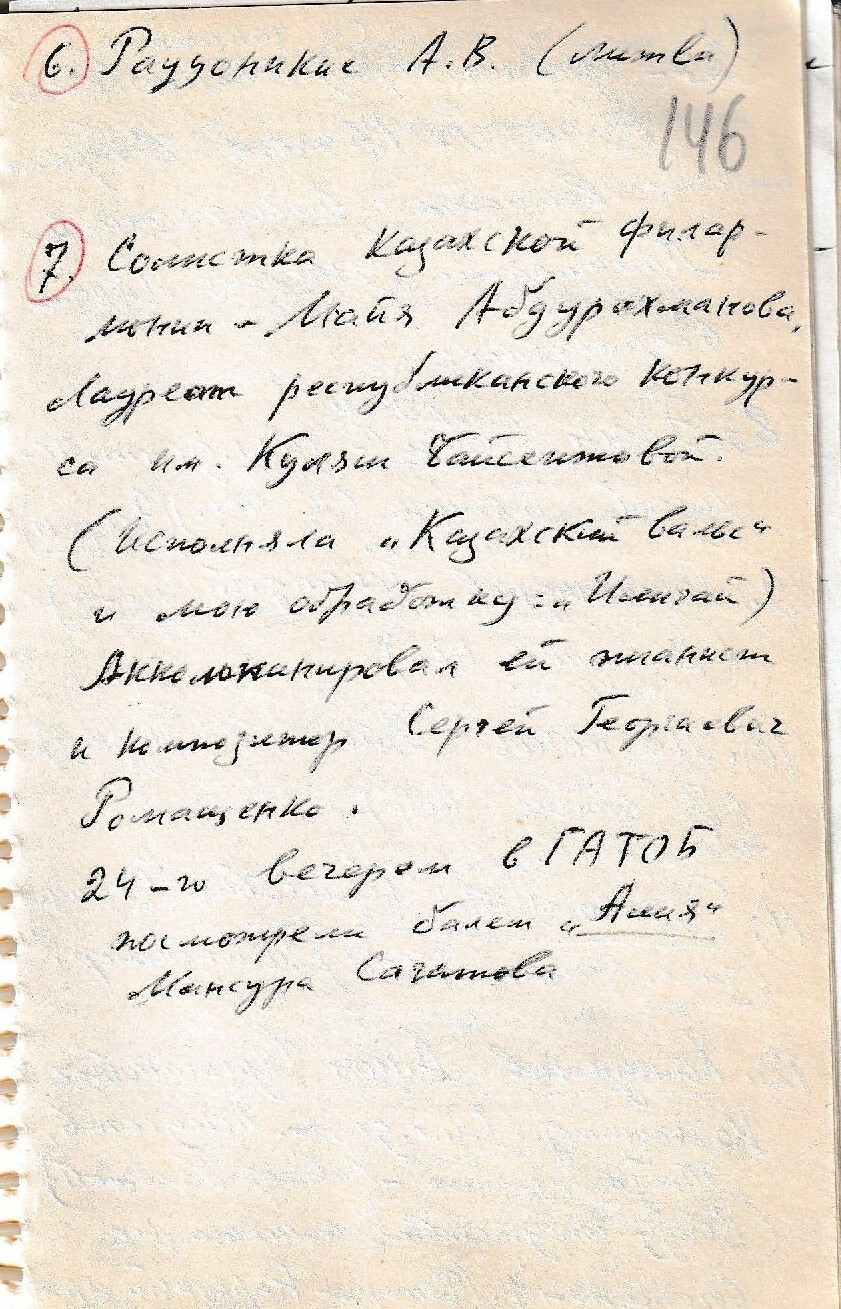 6. Раудоникис А.В. (Литва)
146
7. Солистка Казахской филар-
монии - Майя Абдурахманова,
Лауреат республиканского конкур-
са им. Куляш Байсеитовой.
(Исполняла „Казахский вальс“
и мою обработку: „Илигай)
Аккомпанировал ей пианист
и композитор Сергей Георгиевич
Ромащенко.
24-го вечером в ГАТОБ
посмотрели балет „Алия“
Мансура Сагатова